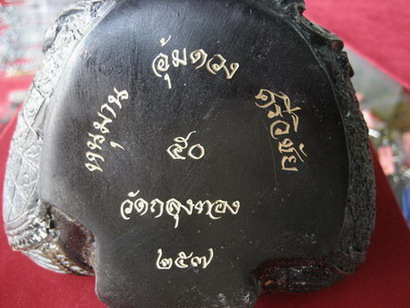 หนุมาน
อุ้มดวง
ศรีวิชัย
๕๐
วัดกลุงทอง
๒๕๗